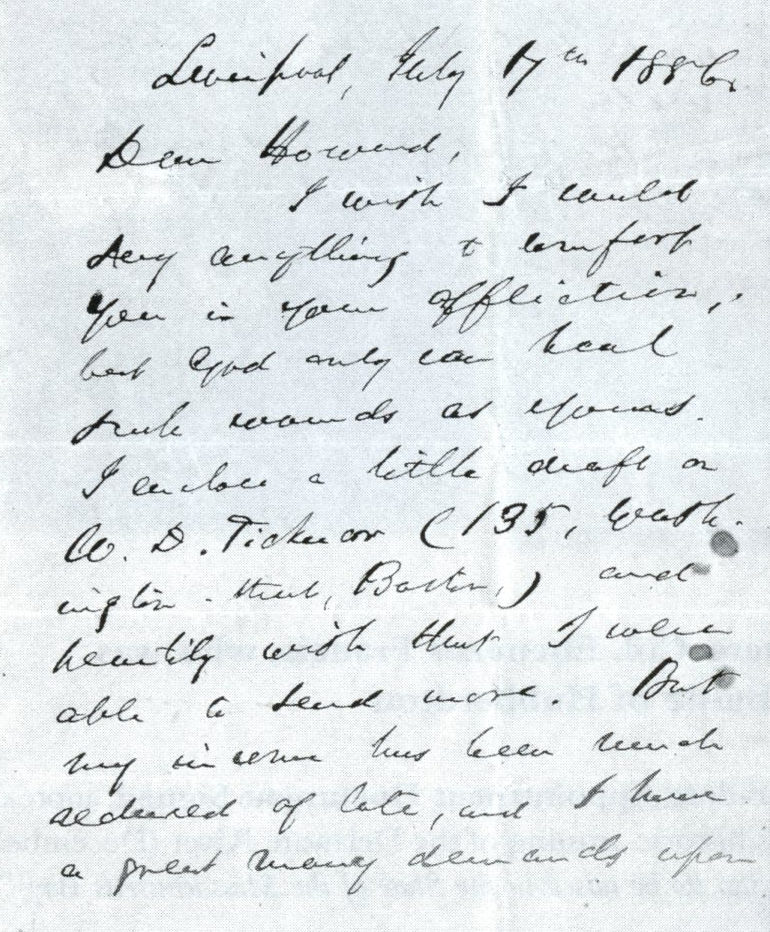 Liverpool, July 17th 1856.
Dear Howard,
I wish I could
say anything to comfort
you in your affliction;
but God only can heal
such wounds as yours.
I enclose a little draft on
W. D. Ticknor (135, Wash-
ington-street, Boston,) and
heartily wish that I were
able to send more. But
my income has been much
reduced of late, and I have
a great many demands upon